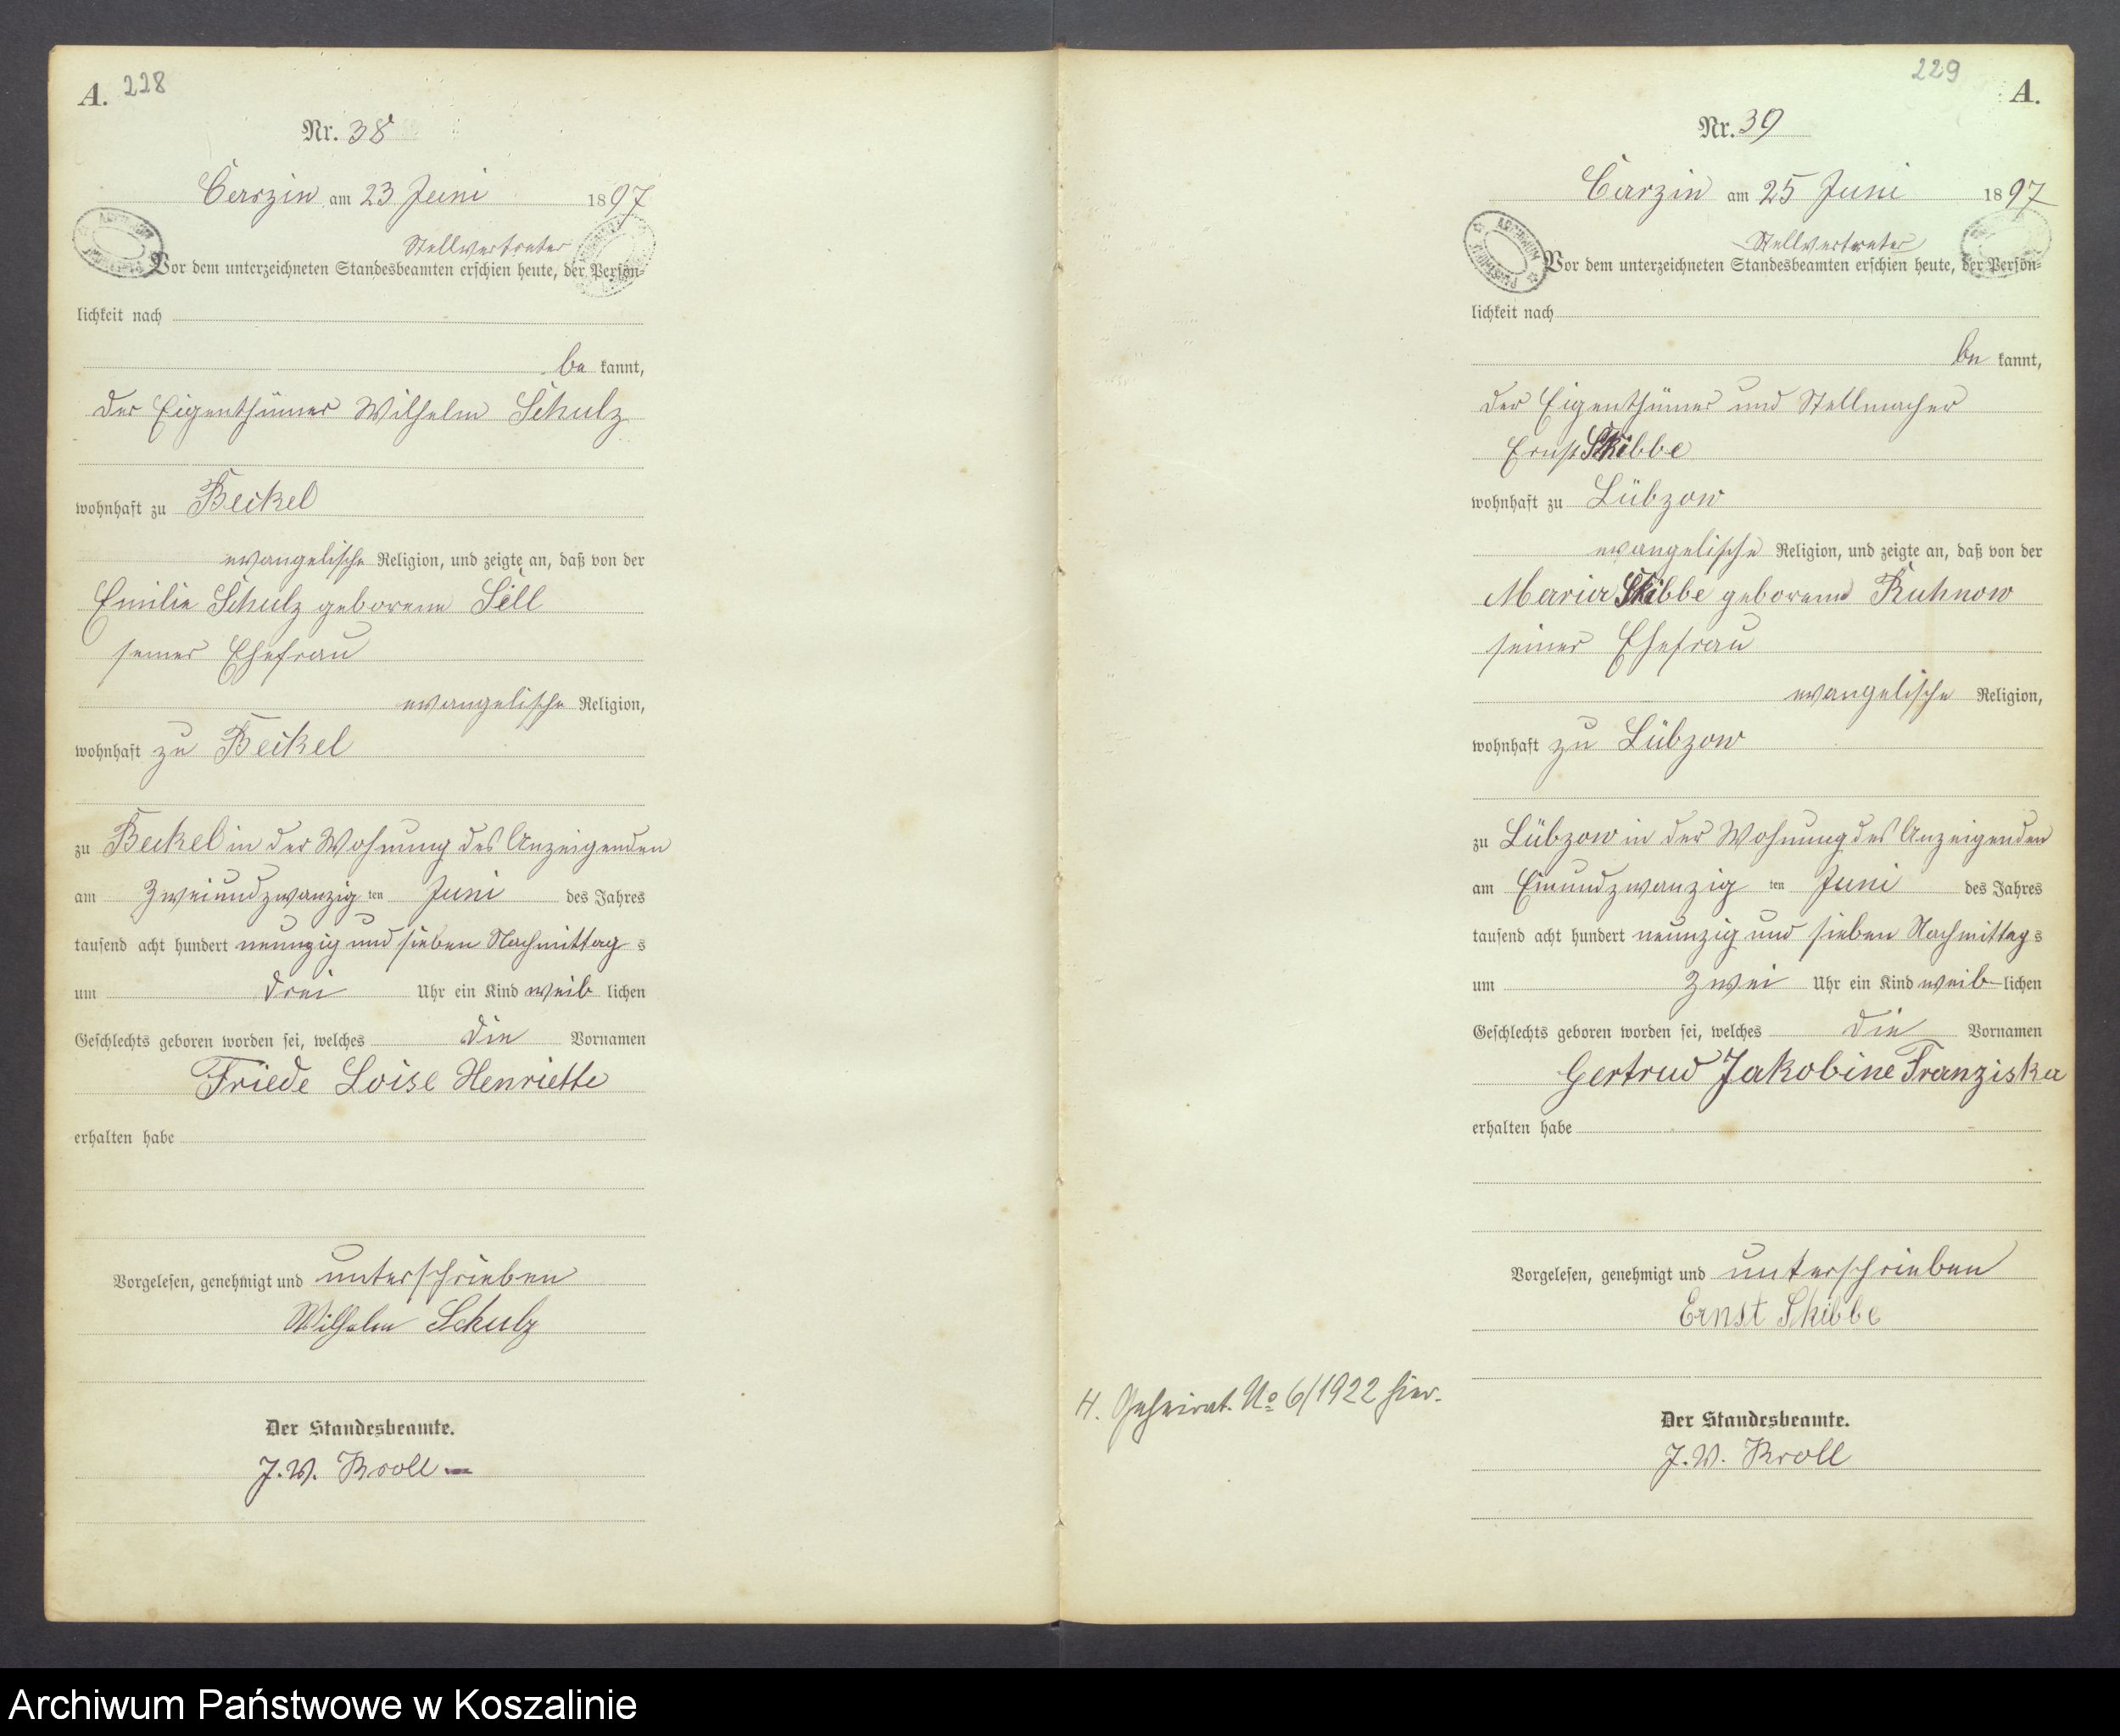 A. 228
Nr. 38
Carzin am 23 Juni 1897
Stellvertreter
Vor dem unterzeichneten Standesbeamten erschien heute, der Persön-
lichkeit nach
be kannt,
der Eigenthümer Wilhelm Schulz
wohnhaft zu Beckel
evangelische Religion, und zeigte an, daß von der
Emilie Schulz geborene Sell
seiner Ehefrau
evangelische Religion,
wohnhaft zu Beckel
zu Beckel in der Wohnung des Anzeigenden
am Zweiundzwanzig ten Juni des Jahres
tausend acht hundert neunzig und sieben Nachmittag s
um drei Uhr ein Kind weib lichen
Geschlechts geboren worden sei, welches die Vornamen
Friede Loise Henriette
erhalten habe
Vorgelesen, genehmigt und unterschrieben
Wilhelm Schulz
Der Standesbeamte.
J. V. Kroll
229 A.
Nr. 39
Carzin am 25 Juni 1897
Stellvertreter
Vor dem unterzeichneten Standesbeamten erschien heute, der Persön-
lichkeit nach
be kannt,
der Eigenthümer und Stellmacher
Ernst Skibbe
wohnhaft zu Lübzow
evangelische Religion, und zeigte an, daß von der
Maria Skibbe geborene Kuhnow
seiner Ehefrau
evangelische Religion,
wohnhaft zu Lübzow
zu Lübzow in der Wohnung des Anzeigenden
am Einundzwanzig ten Juni des Jahres
tausend acht hundert neunzig und sieben Nachmittag s
um Zwei Uhr ein Kind weib lichen
Geschlechts geboren worden sei, welches die Vornamen
Gertrud Jakobine Franziska
erhalten habe
Vorgelesen, genehmigt und unterschrieben
Ernst Skibbe
H. Geheirat. No 6/1922 hier.
Der Standesbeamte.
J. V. Kroll
Archiwum Państwowe w Koszalinie